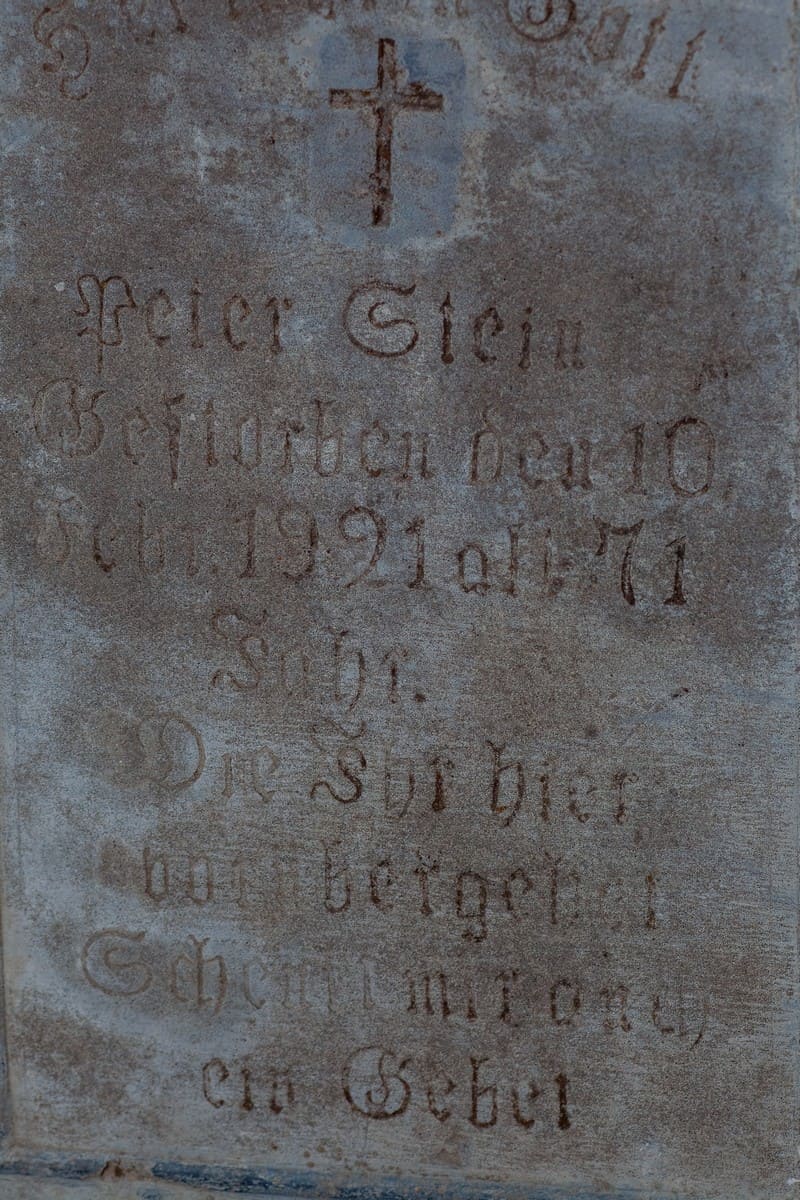 Gott
Peter Stein
Gestorben den 10.
Febr. 1921 alt 71
Jahr.
Die Ihr hier
vorubergehet
Schenkt mir auch
ein Gebet